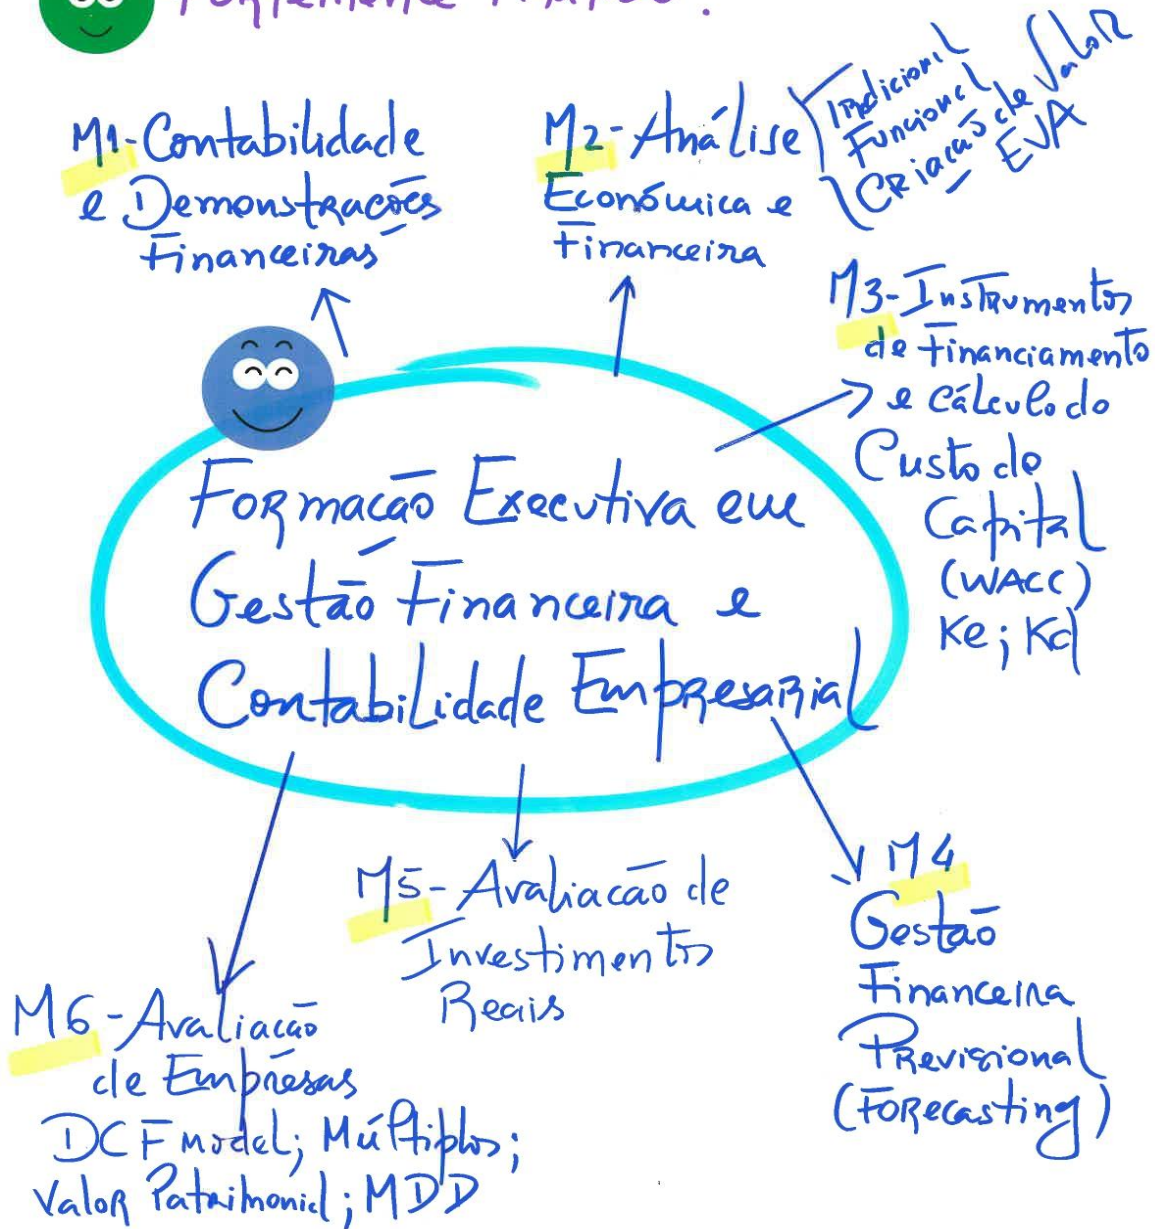 M1-Contabilidade
e Demonstrações
Financeiras
M2-Análise
Económica e
Financeira
Tradicional
Funcional
Criação de Valor
EVA
M3-Instrumentos
de Financiamento
e Cálculo do
Custo do
Capital
(WACC)
Ke; Kd
Formação Executiva em
Gestão Financeira e
Contabilidade Empresarial
M4
Gestão
Financeira
Previsional
(Forecasting)
M5-Avaliação de
Investimentos
Reais
M6-Avaliação
de Empresas
DCF model; Múltiplos;
Valor Patrimonial; MDD